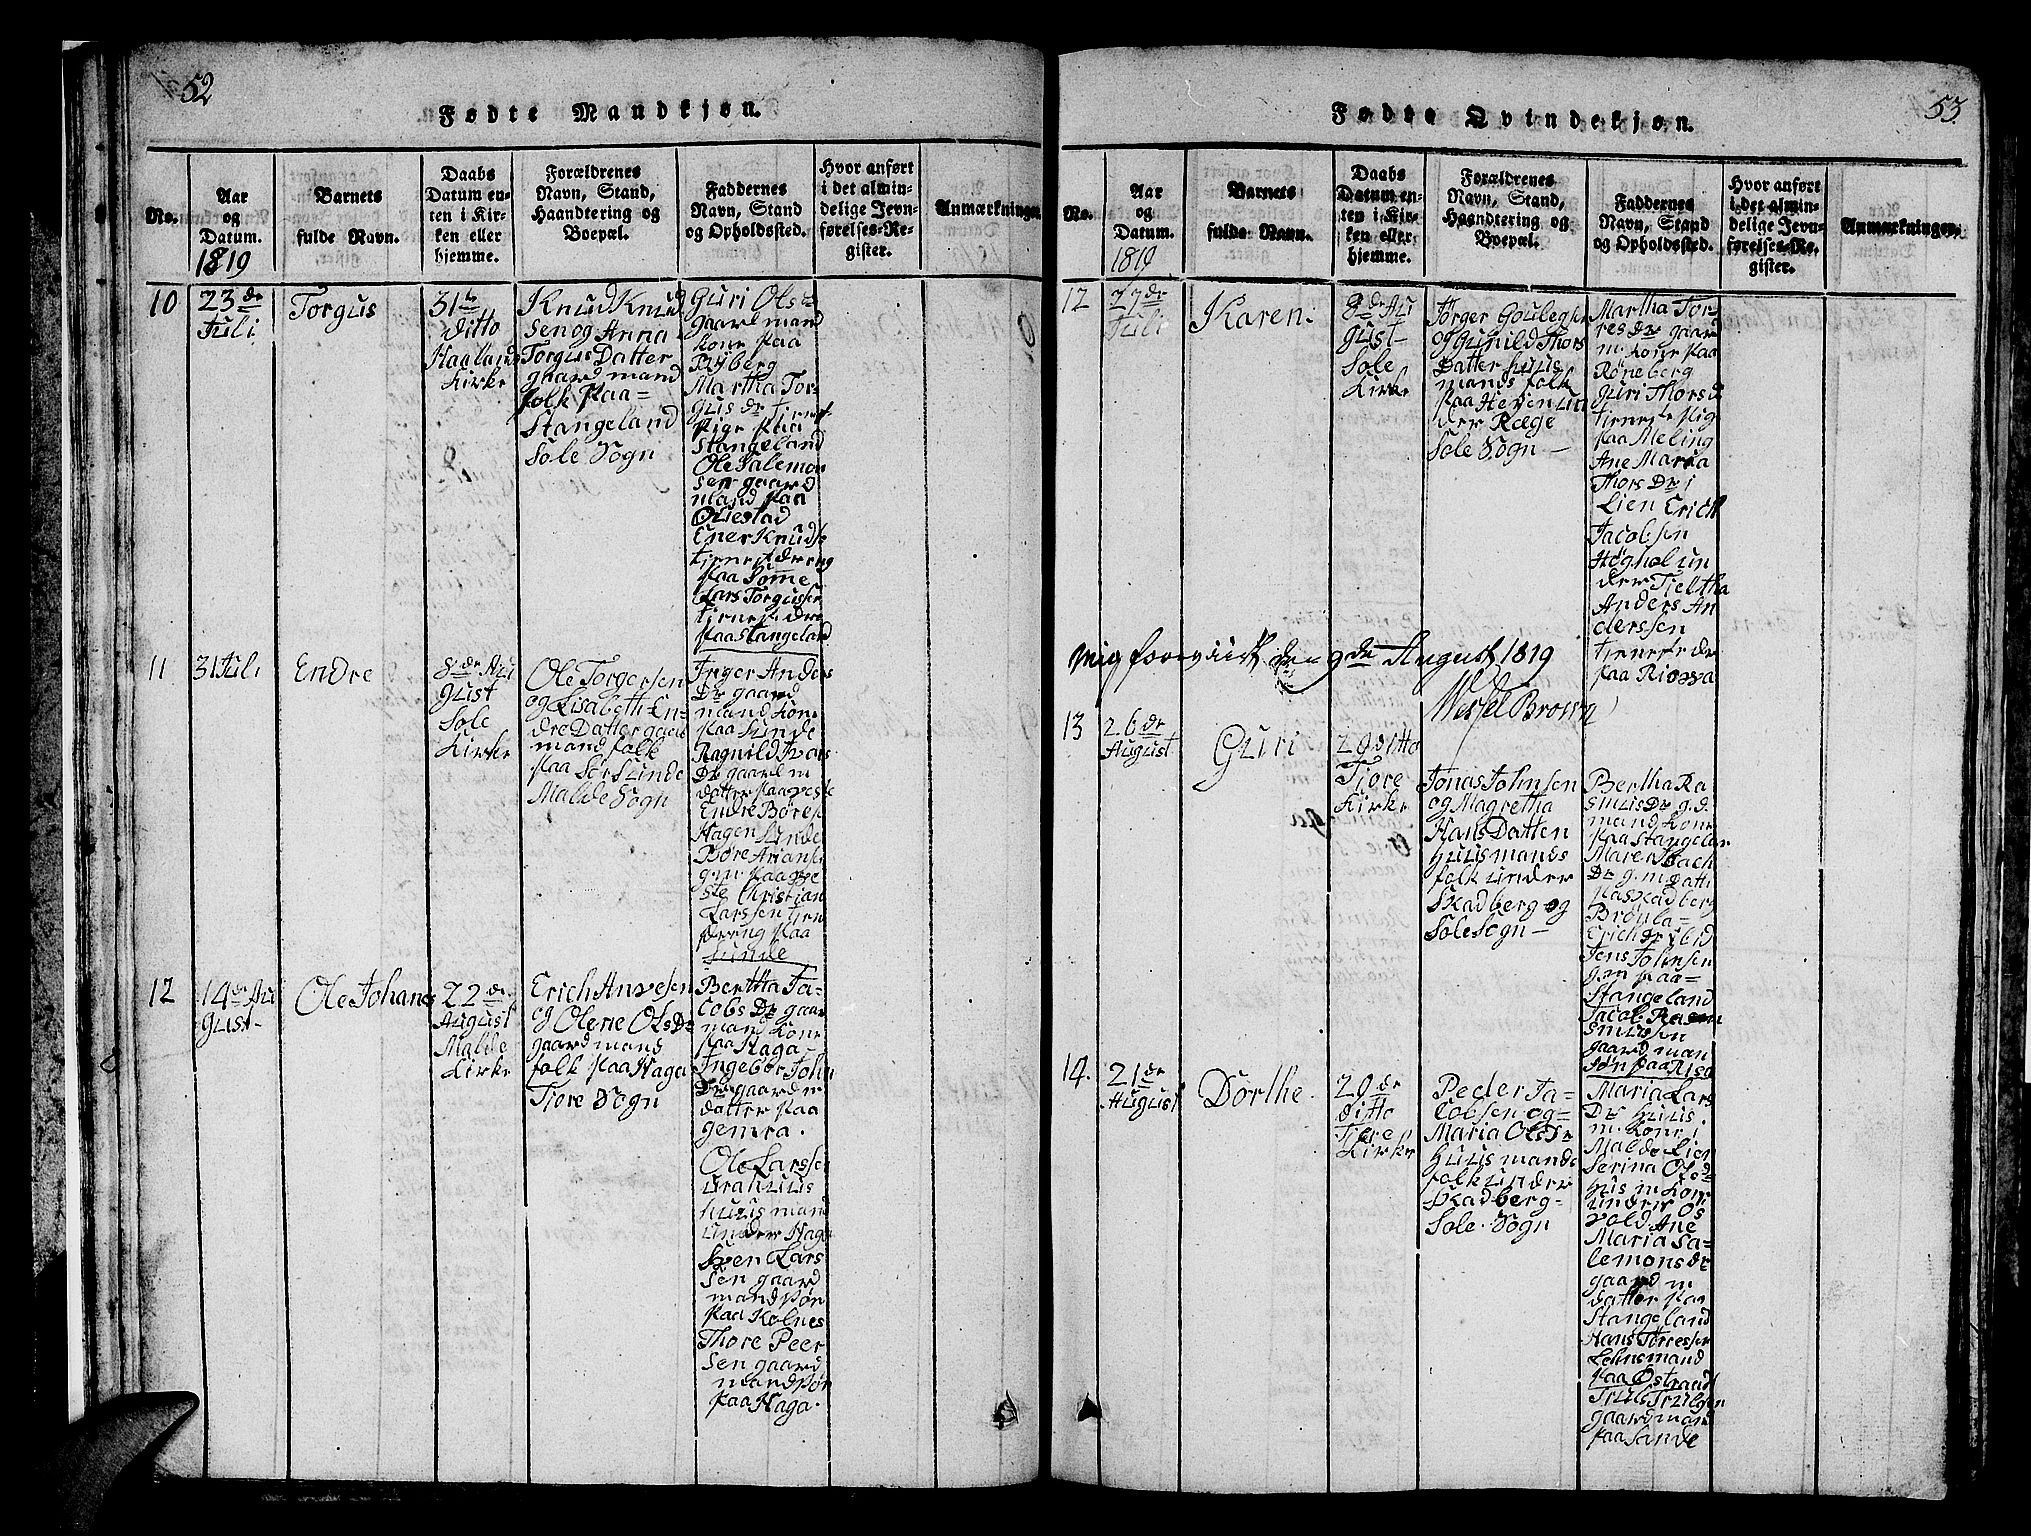 52
Fødte Mandkjøn.
No.
Aar
og
Datum.
1819
Barnets
fulde Navn.
Daabs
Datum en-
ten i Kir-
ken eller
hjemme.
Forældrenes
Navn, Stand,
Haandtering og
Boepæl.
Faddernes
Navn, Stand
og Opholdssted.
Hvor anført
i det almin-
delige Jevn-
førelses-Re-
gister.
Anmærkninger.
10
23de
Juli
Torgus
31te
ditto
Haaland
Kirke
Knud Knud
sen og Anna
Torgus Datter
gaard mand
folk paa
Stangeland
Sole Sogn
Guri Ols
gaard mand
kone paa
Ryberg
Martha Tor-
gus dr
pige paa
Stangeland
Ole Salemon
sen gaard
mand paa
Ollestad
Ener Knuds
paa Tome
Lars Torgussen
paa Stangeland
11
31 Juli
Endre
8de Au
gust
Sole
Kirke
Ole Torgersen
og Lisabeth En-
dre Datter gaard
mand folk
paa Sør Sunde
Malde Sogn
Inger Anders
Dr gaard
mand kone
paa Sunde
Ragnild Ivars
Dr gaard m
datter paa
Endre Børes
Hagen Sunde
Børe Arians
g.m. paa
Christian
Larssen
dreng paa
Sunde
12
14de Au
gust
Ole Johanes
22de
August
Malde
Kirke
Erich Anvesen
og Olene Ols Dr
gaard mand
folk paa Haga
Tjore Sogn
Bertha Ja-
cobs Dr gaar
mand kone
paa Haga
Ingebor John
Dr gaard m
datter paa
Gemra.
Ole Larssen
huusmand
under Haga
Sven Lars
sen gaard
mand søn
paa Kolnes
Thore Peer
sen gaard
mand søn
paa Haga.
53.
Fødte Qvindekjøn.
No.
Aar
og
Datum.
1819
Barnets
fulde Navn.
Daabs
Datum en-
ten i Kir-
ken eller
hjemme.
Forældrenes
Navn, Stand,
Haandtering og
Boepæl.
Faddernes
Navn, Stand
og Opholdssted.
Hvor anført
i det almin-
delige Jevn-
førelses-Re-
gister.
Anmærkninger.
12
27de
Juli
Karen.
8de Au
gust
Sole
Kirke
Tørger
og Gunild Thors
Datter huus
mands folk
paa un
der Ræge
Sole Sogn
Martha Tor-
res Dr gaard
m. kone paa
Røneberg
Guri Thors d
tieneste pig
paa Meling
Ane Maria
Thors Dr i
Lien Erich
Jacobsen
Høghol un
der Tjeltha
Anders An
derssen
tieneste
paa
den 9de August 1819
Wessel Brown
13
26de
August
Guri
29 ditto
Tjore
Kirke
Jonas Johnsen
og Magretha
Hans Datter
huusmands
folk under
Skadberg og
Sole Sogn
Bertha Ra
smus Dr g.d.
mand kone
paa Stangelan
Maren
Dr g.m. Datt
pa Skadberg
Erich
Jens Johnsen
g.m paa
Stangeland
Jacob Rasm
smussen
gaard man
søn paa Risa
14.
21de
August
Dorthe.
29de
ditto
Tjore
Kirke
Peder Ja-
cobsen og
Maria Ols Dr
huusmands
folk under
Skadberg
Sole Sogn
Maria Lars
Dr huus
m. kone i
Malde Lien
Serina Ols d
huus m kone
under Os
vold Ane
Maria Sa-
lemons dr
gaard m
datter paa
Stangeland
Hans Torressen
Lehnsmand
paa Østraadt
Truls Trulsen
gaard mand
paa Sande